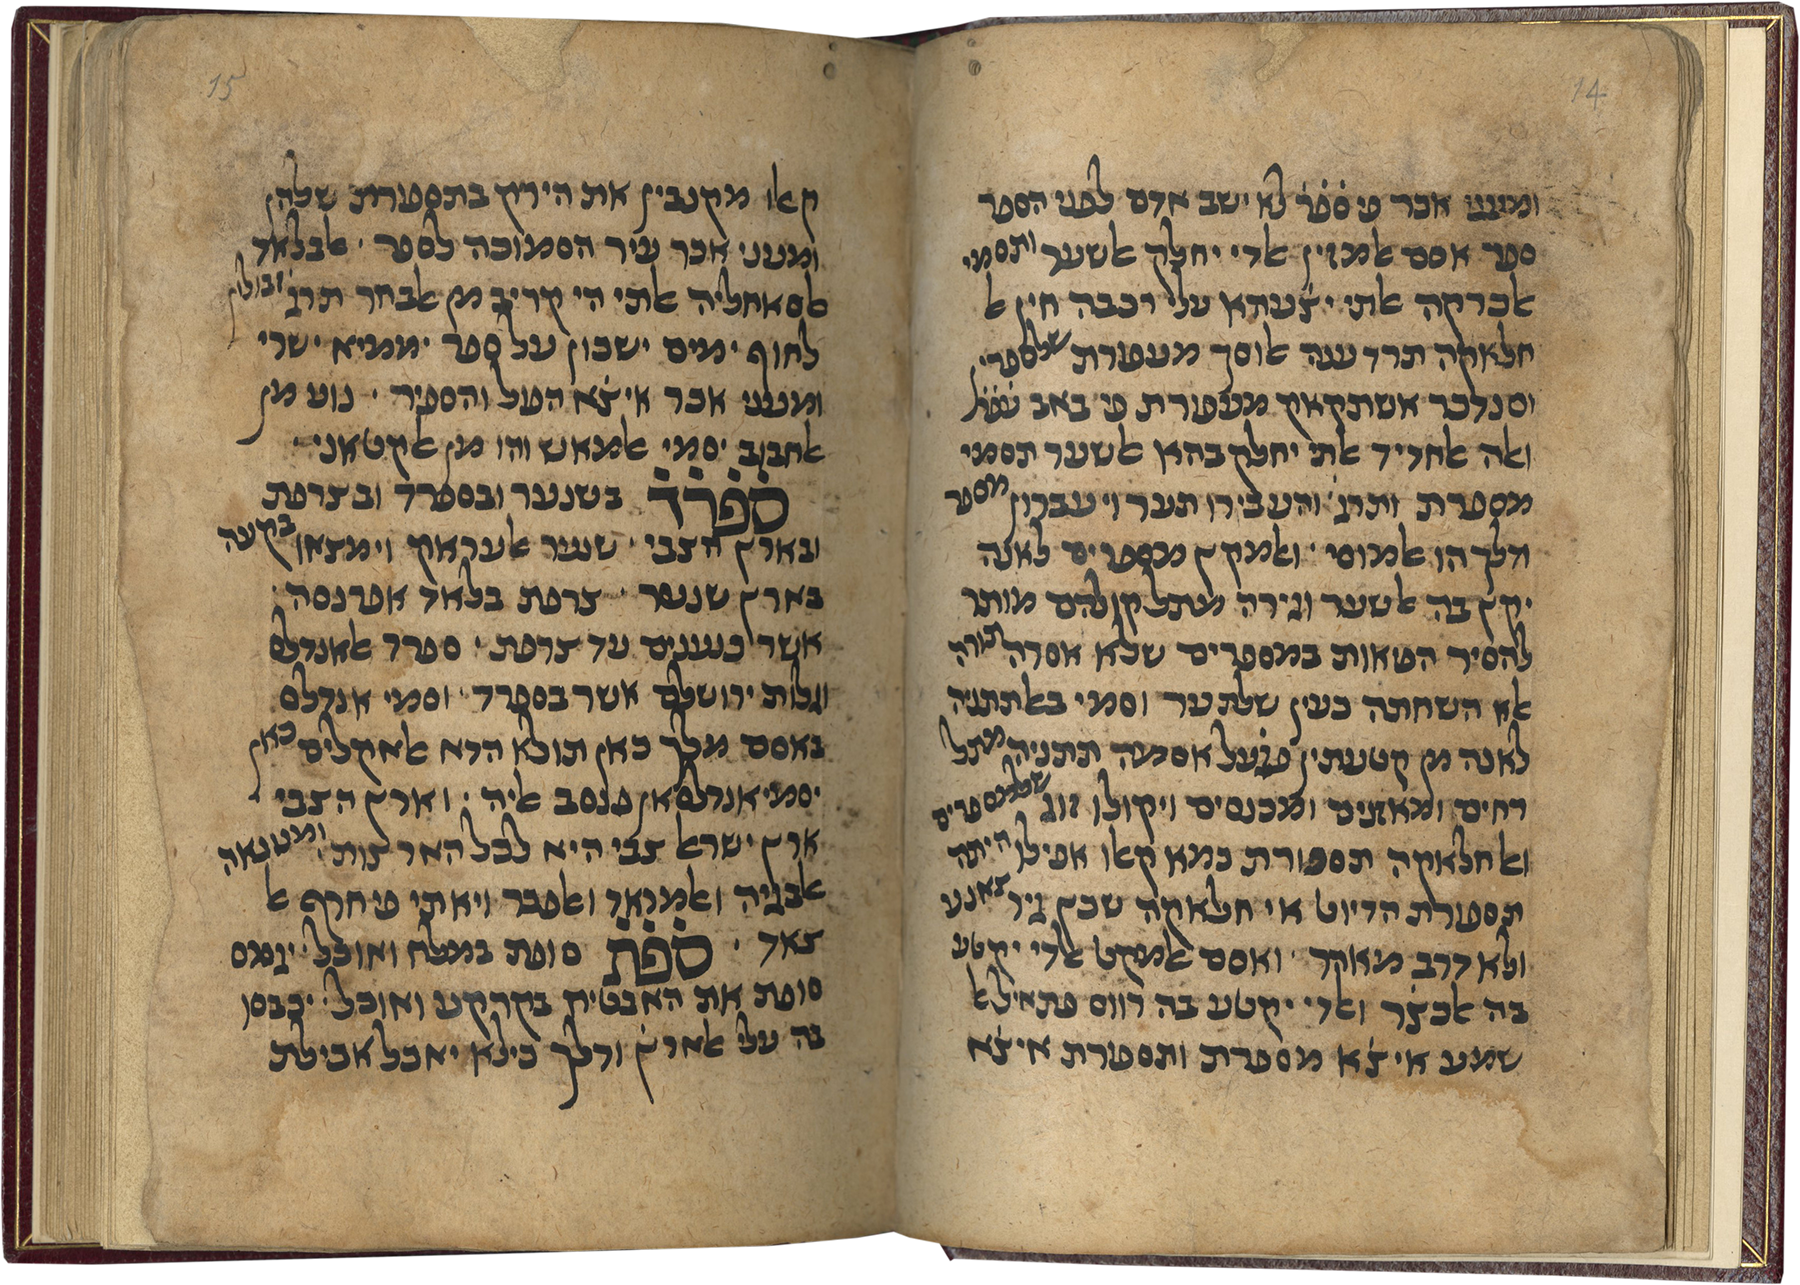 14
ומעני אכר פי ספר לא ישב אדם לפני הספר
ספר אסם אלמזין אלדי יחלק אלשער ותסמי
אלכרקה אלתי יצעהא עלי רכבה חין אל
חלאקה תרד ענה אלוסך מעפורת שלספרי
וסנדכר אשתקאק מעפורת פי באב עפר
ואלה אלחדיד אלתי יחלק בהא אלשער תסמי
מספרת ותרג והעבירו תער ויעברון מספר
ודלך הו אלמוסי ואלמקץ מספרים לאנה
יקץ בה אלשער וגירה מתל קולהם מותר
להסיר הפאות במספרים שלא אסרה תורה
אלא השחתה כעין שלתער וסמי באלתתניה
לאנה מן קטעתין פגעל אסמה תתניה מתל
רחים ומאזנים ומכנסים ויקולו זוג שלמספרים
ואלחלאקה תספורת כמא קאלו אפילו היתה
תספורת הדיוט אי חלאקה שכץ גיר צאנע
ולא דרב מאהר ואסם אלמקט אלדי יקטע
בה אלכצר ואלדי יקטע בה רווס פתאילא
שמע איצא מספרת ותספורת איצא
15
קאלו מקנבין את הירק בתספורת שלהן
ומעני אכר עיר הסמוכה לספר אלבלאד
אלסאחליה אלתי הי קריב מן אלבחר תרג זבולון
לחוף ימים ישכון על ספר יממיא ישרי
ומעני אכר איצא הפול והספיר נוע מן
אלחבוב יסמי אלמאש והו מן אלקטאני
ספרד בשנער ובספרד ובצרפת
ובארץ הצבי שנער אלעראק וימצאו בקעה
בארץ שנער צרפת בלאד אפרנסה
אשר כנענים עד צרפת ספרד אלאנדלס
וגלות ירושלם אשר בספרד וסמי אנדלס
באסם מלך כאן תולא הדא אלאקלים כאן
יסמי אנדלסאן פנסב אליה וארץ הצבי
ארץ ישראל צבי היא לכל הארצות ומענאה
אלבגיה ואלמראד ואלפכר ויאתי פי חרף אל
צאד ספת סופת במלח ואוכל יגמס
סופת את האבטיח בקרקע ואוכל יכבסו
בה עלי אלארץ ודלך כילא יאכל אכילת